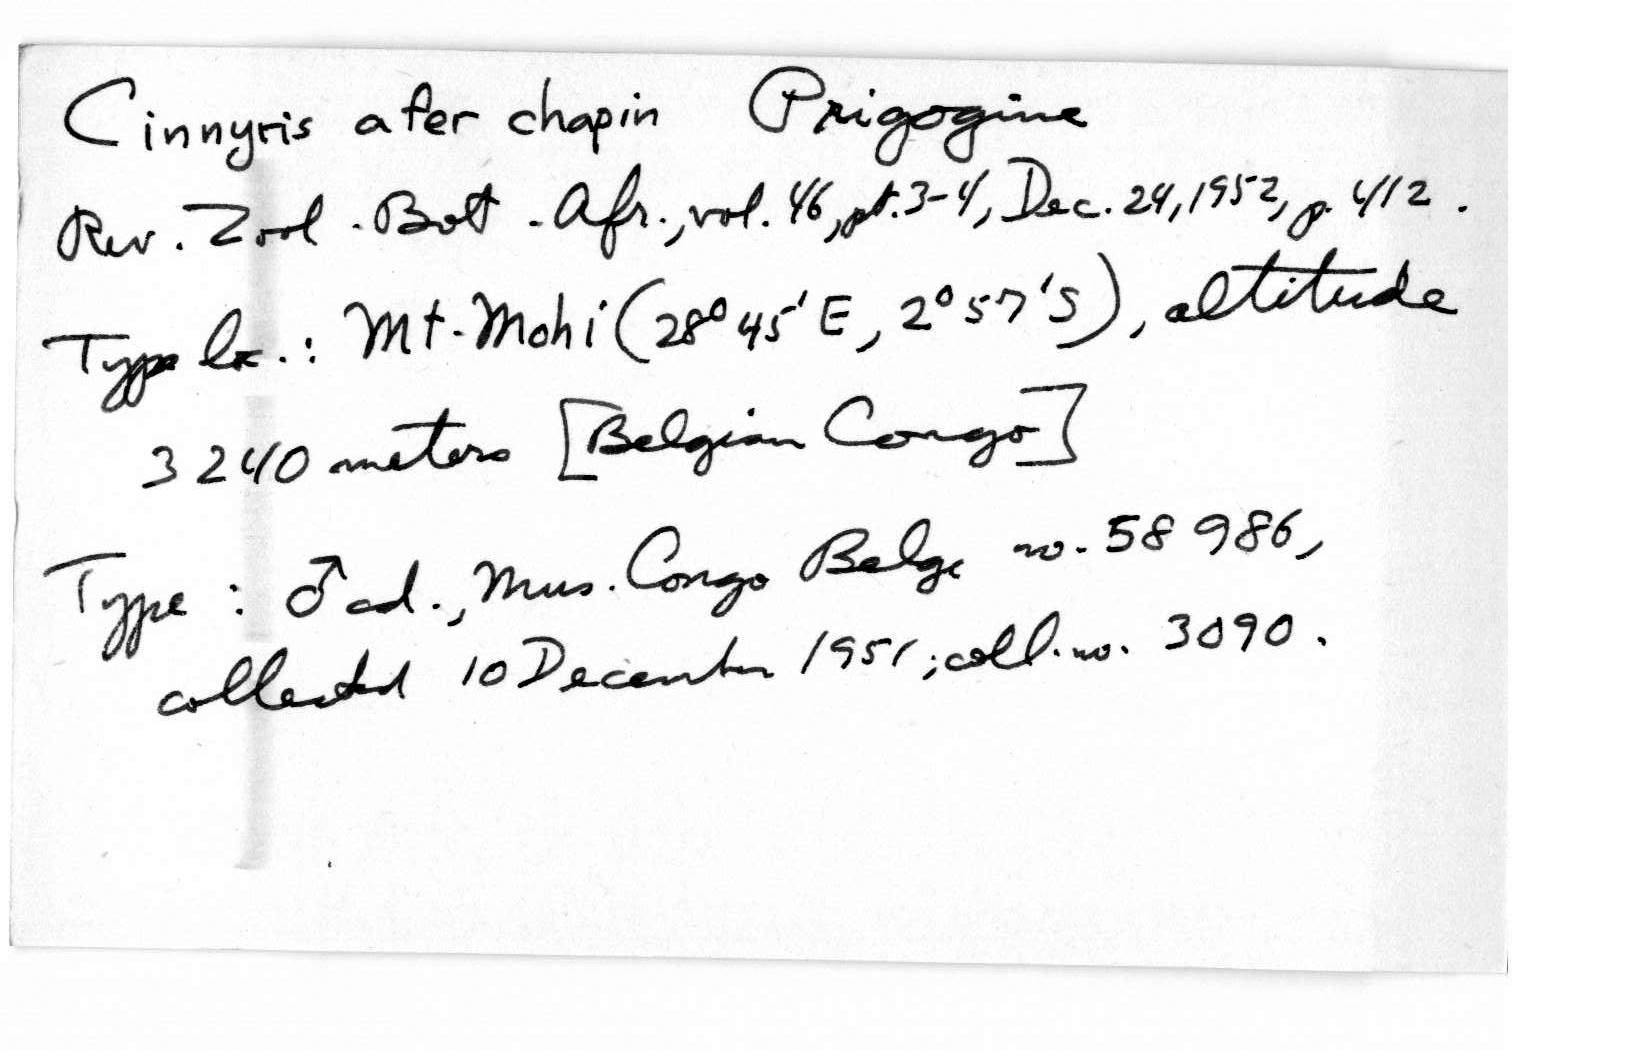 Cinnyris afer chapin Prigogine
Rev. Zool. Bot. Afr., vol. 46, pt. 3-4, Dec. 24, 1952, p. 412.
Type loc.: Mt. Mohi (28° 45' E, 2° 57' S), altitude
3240 meters [Belgian Congo]
Type: ♂ ad., Mus. Congo Belge no. 58986,
collected 10 December 1951; coll. no. 3090.